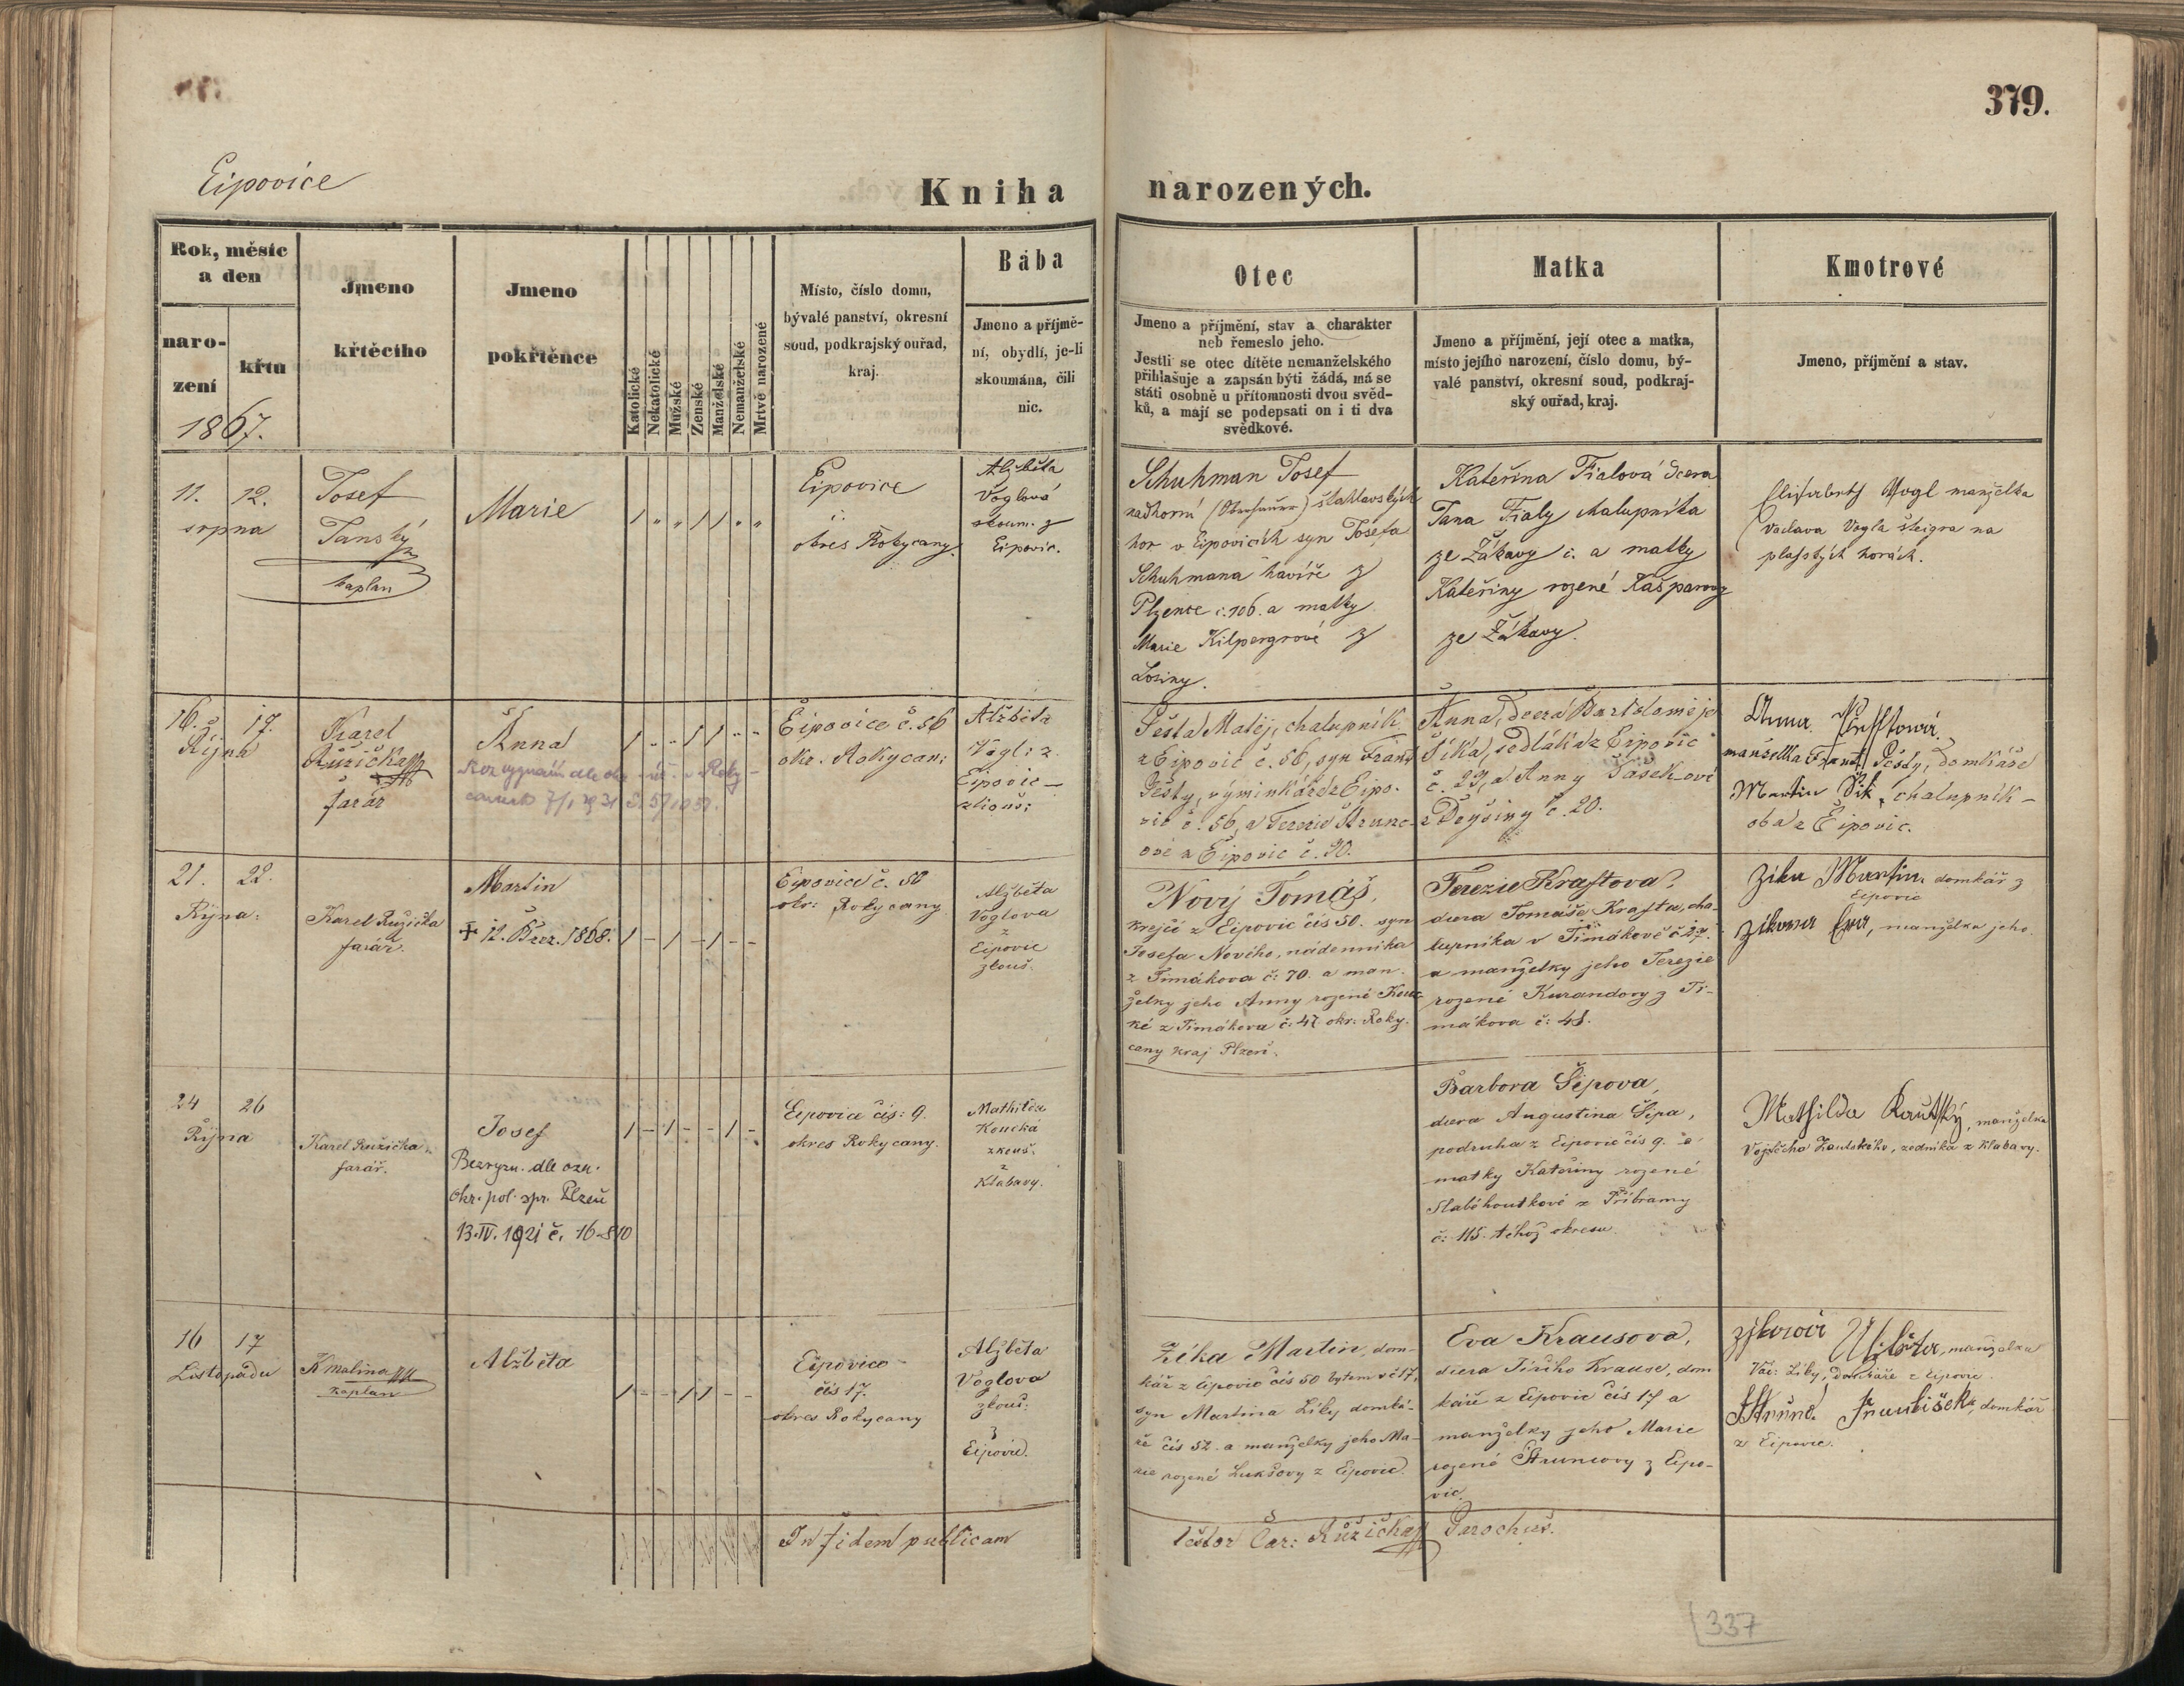 379.
Eipovice
Kniha narozených.
Rok, měsíc
a den
naro-
zení
křtu
1867.
Jmeno
křtěcího
Jmeno
pokřtěnce
Katolické
Nekatolické
Mužské
Ženské
Manželské
Nemanželské
Mrtvě narozené
Místo, číslo domu,
bývalé panství, okresní
soud, podkrajský ouřad,
kraj.
Bába
Jmeno a příjmě-
ní, obydlí, je-li
skoumána, čili
nic.
Otec
Jmeno a příjmění, stav a charakter
neb řemeslo jeho.
Jestli se otec dítěte nemanželského
přihlašuje a zapsán býti žádá, má se
státi osobně u přítomnosti dvou svěd-
ků, a mají se podepsati on i ti dva
svědkové.
Matka
Jmeno a příjmění, její otec a matka,
místo jejího narození, číslo domu, bý-
valé panství, okresní soud, podkraj-
ský ouřad, kraj.
Kmotrové
Jmeno, příjmění a stav.
11. 12.
srpna
Josef
Janský
kaplan
Marie
Eipovice
č.
okres Rokycany.
Alžběta
Voglová
skoum. z
Eipovic.
Schuhman Josef
nadhorní štahlavských
hor v Eipovicích syn Josefa
Schuhmana havíře z
Plzence č. 106. a matky
Marie Kilpergrové z
Losiny.
Kateřina Fialová dcera
Jana Fialy chalupníka
ze Žákavy č. a matky
Kateřiny rozené Kašparovy
ze Žákavy.
Elisabeth Vogl manželka
Vaclava Vogla šteigra na
plaských horách.
16. 17.
Října
Karel
Růžička
farář
Anna
Eipovice č. 56
okr. Rokycan:
Alžběta
Vogl: z
Eipovic
zkouš:
Šesta Matěj, chalupník
z Eipovic č. 56, syn Frant
Šesty, výminkáře z Eipo-
vic č. 56, a Terezie Štrunc-
ové z Eipovic č. 20.
Anna, dcera Bartoloměje
Šika, sedláka z Eipovic
č. 29, a Anny Jašekové
z Dejšiny č. 20.
Anna
manželka Frant. Šesty, domkáře
Martin Šik, chalupník -
oba z Eipovic.
21. 22.
Října.
Karel Ružička
farář.
Martin
✝ 12. Břez. 1868.
Eipovice č. 50
okr: Rokycany
Alžběta
Voglova
z
Eipovic
zkouš.
Nový Tomáš,
krejčí z Eipovic čís 50. syn
Josefa Nového, nádenníka
z Timákova č: 70. a man-
želky jeho Anny rozené Kouc-
ké z Timákova č: 47. okr: Roky-
cany kraj Plzeň.
Terezie Kraftova,
dcera Tomáše Krafta, cha-
lupníka v Timákově č 27.
a manželky jeho Terezie
rozené Kurandovy z Ti-
mákova č: 48.
Zika Martin, domkář z
Eipovic
Zikova Eva, manželka jeho.
24 26
Října
Karel Ružička
farář.
Josef
Bezvyzn. dle ozn.
Okr. pol. spr. Plzeň
13. IV. 1921 č. 16-810
Eipovice čís: 9.
okres Rokycany.
Mathilda
Koucká
zkouš.
z
Klabavy.
Barbora Šípova,
dcera Augustina Šípa,
podruha z Eipovic čís 9. a
matky Kateřiny rozené
Slabohoutkové z Příbramy
č: 115. téhož okresu.
Mathilda Kautský, manželka
Vojtěcha Kautského, zedníka z Klabavy.
16 17
Listopadu
K Malina
kaplan
Alžběta
Eipovice
čís 17.
okres Rokycany
Alžběta
Voglova
zkouš:
z
Eipovic.
Zika Martin, dom-
kář z Eipovic čís 50 bytem v č 17,
syn Martina Ziky domká-
ře čís 52. a manželky jeho Ma-
rie rozené Lukšovy z Eipovic.
Eva Krausova,
dcera Jiřího Krause, dom
káře z Eipovic čís 17 a
manželky jeho Marie
rozené Štruncovy z Eipo-
vic.
Zikova Alžběta, manželka
Vác: Ziky, domkáře z Eipovic.
Štrunc František, domkář
z Eipovic.
In fidem publicam
testor Car: Růžička Parochus.
337